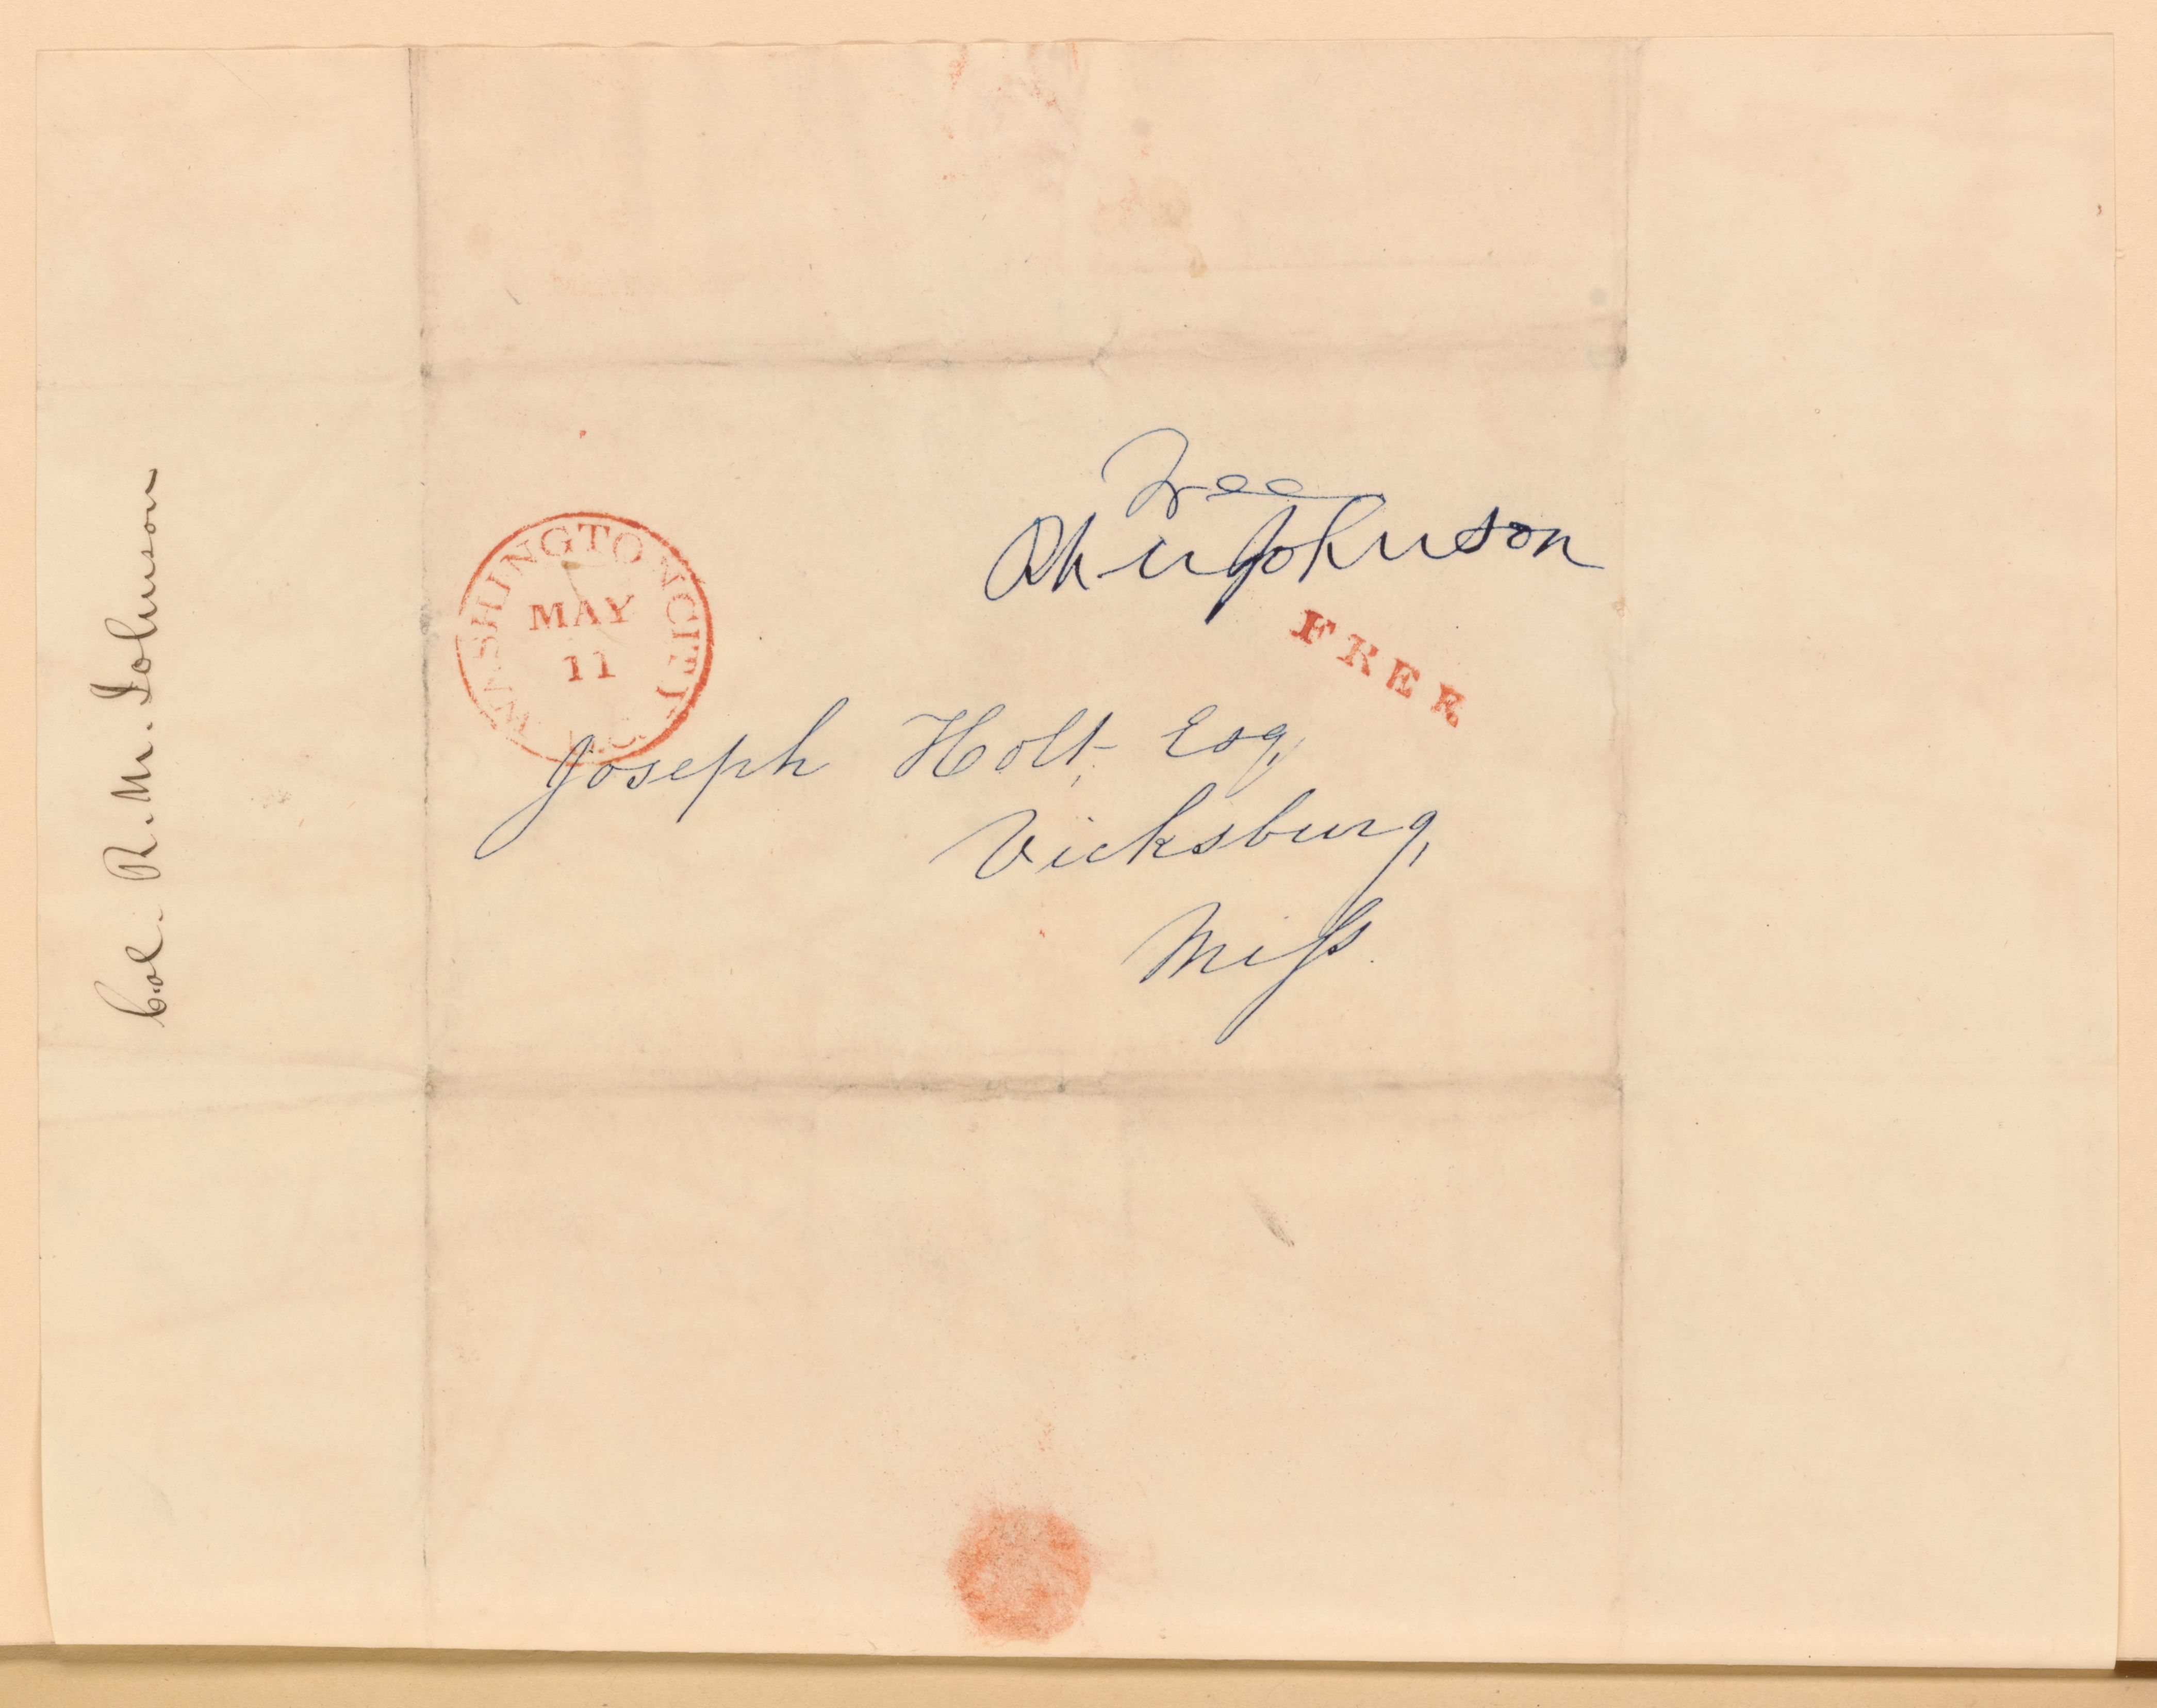 Col. R. M. Johnson
Free
Rh M Johnson
WASHINGTON CITY D.C.
MAY
11
FREE
Joseph Holt, Esq,
Vicksburg,
Miſs.